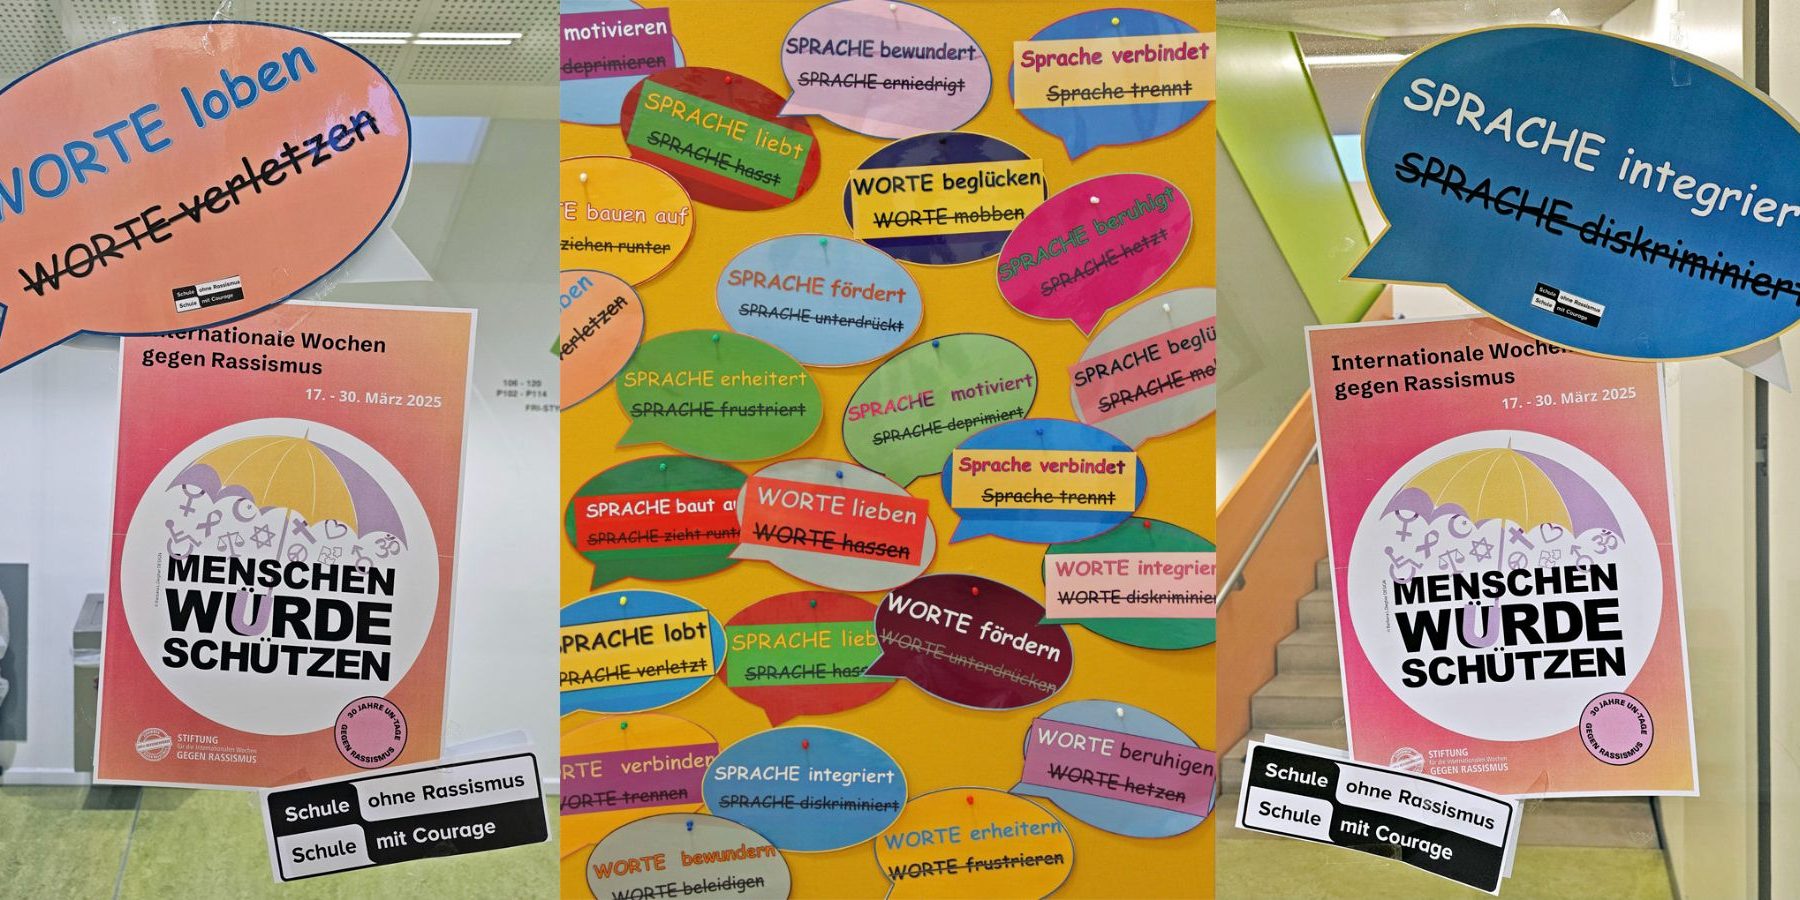 WORTE loben
WORTE verletzen
Schule ohne Rassismus
Schule mit Courage
Internationale Wochen
gegen Rassismus
17. - 30. März 2025
MENSCHEN
WÜRDE
SCHÜTZEN
30 JAHRE UN-TAGE
GEGEN RASSISMUS
STIFTUNG
für die Internationalen Wochen
GEGEN RASSISMUS
Schule ohne Rassismus
Schule mit Courage
106 - 120
P102 - P114
motivieren
deprimieren
SPRACHE bewundert
SPRACHE erniedrigt
Sprache verbindet
Sprache trennt
SPRACHE liebt
SPRACHE hasst
WORTE beglücken
WORTE mobben
E bauen auf
ziehen runter
SPRACHE beruhigt
SPRACHE hetzt
SPRACHE fördert
SPRACHE unterdrückt
ben
verletzen
SPRACHE erheitert
SPRACHE frustriert
SPRACHE motiviert
SPRACHE deprimiert
SPRACHE beglü
SPRACHE mo
Sprache verbindet
Sprache trennt
SPRACHE baut au
SPRACHE zieht runt
WORTE lieben
WORTE hassen
WORTE integrier
WORTE diskriminier
SPRACHE lobt
PRACHE verletzt
SPRACHE lieb
SPRACHE hass
WORTE fördern
WORTE unterdrücken
RTE verbinden
WORTE trennen
SPRACHE integriert
SPRACHE diskriminiert
WORTE beruhigen
WORTE hetzen
WORTE erheitern
WORTE frustrieren
WORTE bewundern
WORTE beleidigen
SPRACHE integrier
SPRACHE diskriminiert
Schule ohne Rassismus
Schule mit Courage
Internationale Wochen
gegen Rassismus
17. - 30. März 2025
MENSCHEN
WÜRDE
SCHÜTZEN
30 JAHRE UN-TAGE
GEGEN RASSISMUS
STIFTUNG
für die Internationalen Wochen
GEGEN RASSISMUS
Schule ohne Rassismus
Schule mit Courage